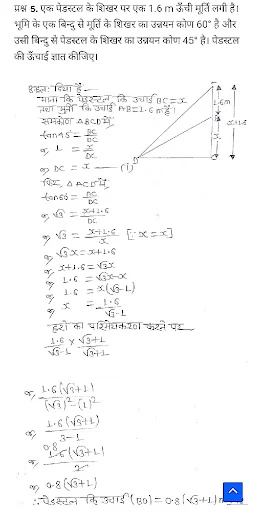 प्रश्न 5. एक पेडस्टल के शिखर पर एक 1.6 m ऊँची मूर्ति लगी है।
भूमि के एक बिन्दु से मूर्ति के शिखर का उन्नयन कोण 60° है और
उसी बिन्दु से पेडस्टल के शिखर का उन्नयन कोण 45° है। पेडस्टल
की ऊँचाई ज्ञात कीजिए।
हल: दिया है -
माना कि पेडस्टल कि उचाई BC = x
तथा मुर्ती कि उचाई AB = 1.6 m है।
समकोण ΔBCD में
tan45 = BC/DC
1 = x/DC
DC = x — (1)
फिर, ΔACD में
tan60 =
√3 = x+1.6/DC
√3 = x+1.6/x [∵ x = x]
√3x = x+1.6
x+1.6 = √3x
1.6 = √3x-x
1.6 = x(√3-1)
x = 1.6/√3-1
हरो का परिमेयकरण करने पर
1.6/√3-1 × √3+1/√3+1
1.6(√3+1)/(√3)²-(1)²
1.6(√3+1)/3-1
0.8
1.6(√3+1)/2
0.8(√3+1)
∴ पेडस्टल कि उचाई (BD) = 0.8(√3+1)
1.6m
x
x+1.6
D